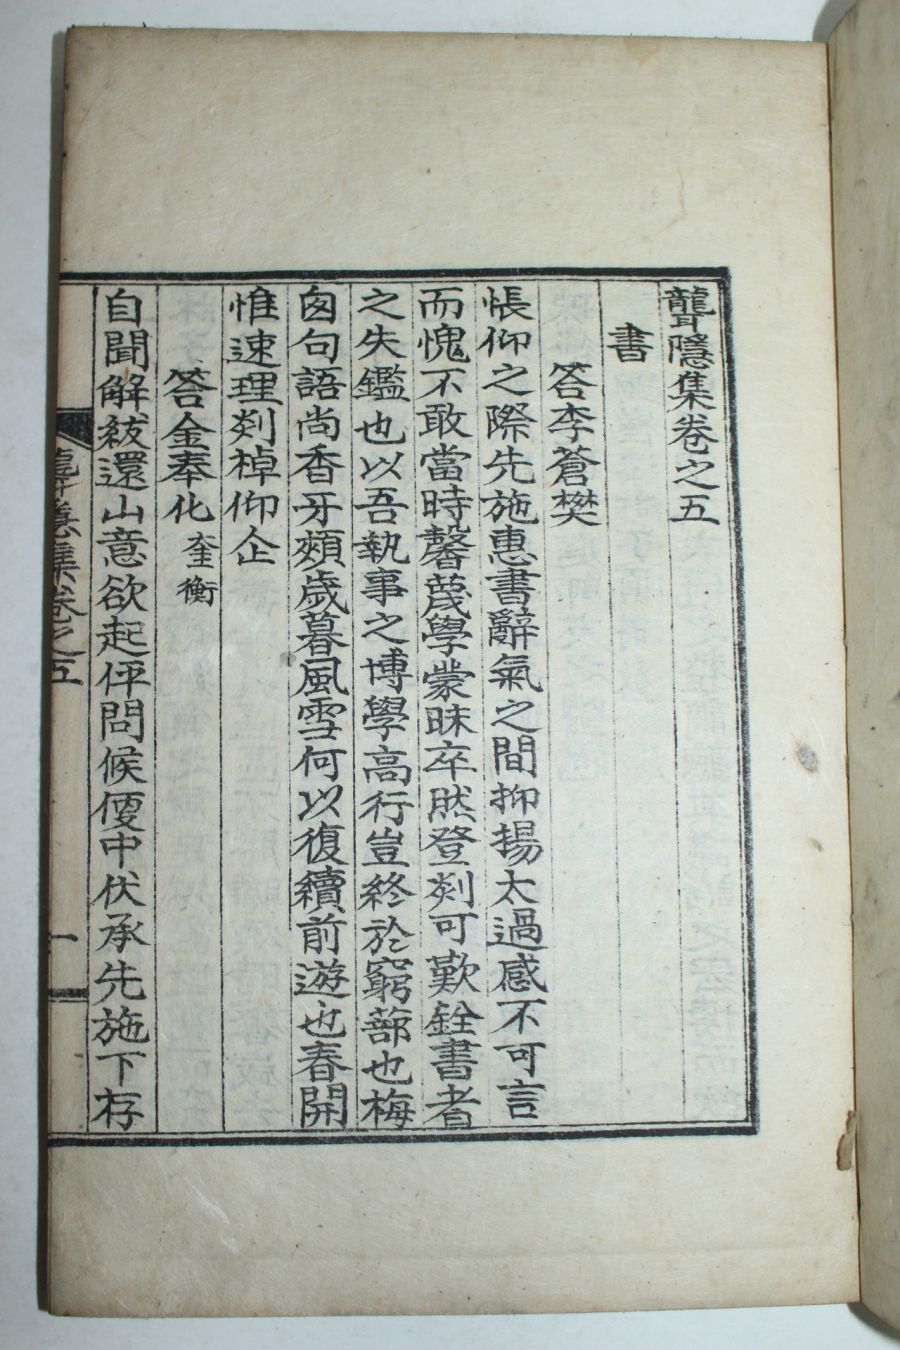 聾隱集卷之五
書
答李蒼樊
悵仰之際先施惠書辭氣之間抑揚太過感不可言
而愧不敢當時馨蔑學蒙昧卒然登剡可歎銓書者
之失鑑也以吾執事之博學高行豈終於窮蔀也梅
囱句語尚香牙頰歲暮風雪何以復續前遊也春開
惟速理剡棹仰企
答金奉化奎衡
自聞解紱還山意欲起伻問候便中伏承先施下存
聾隱集卷之五
一